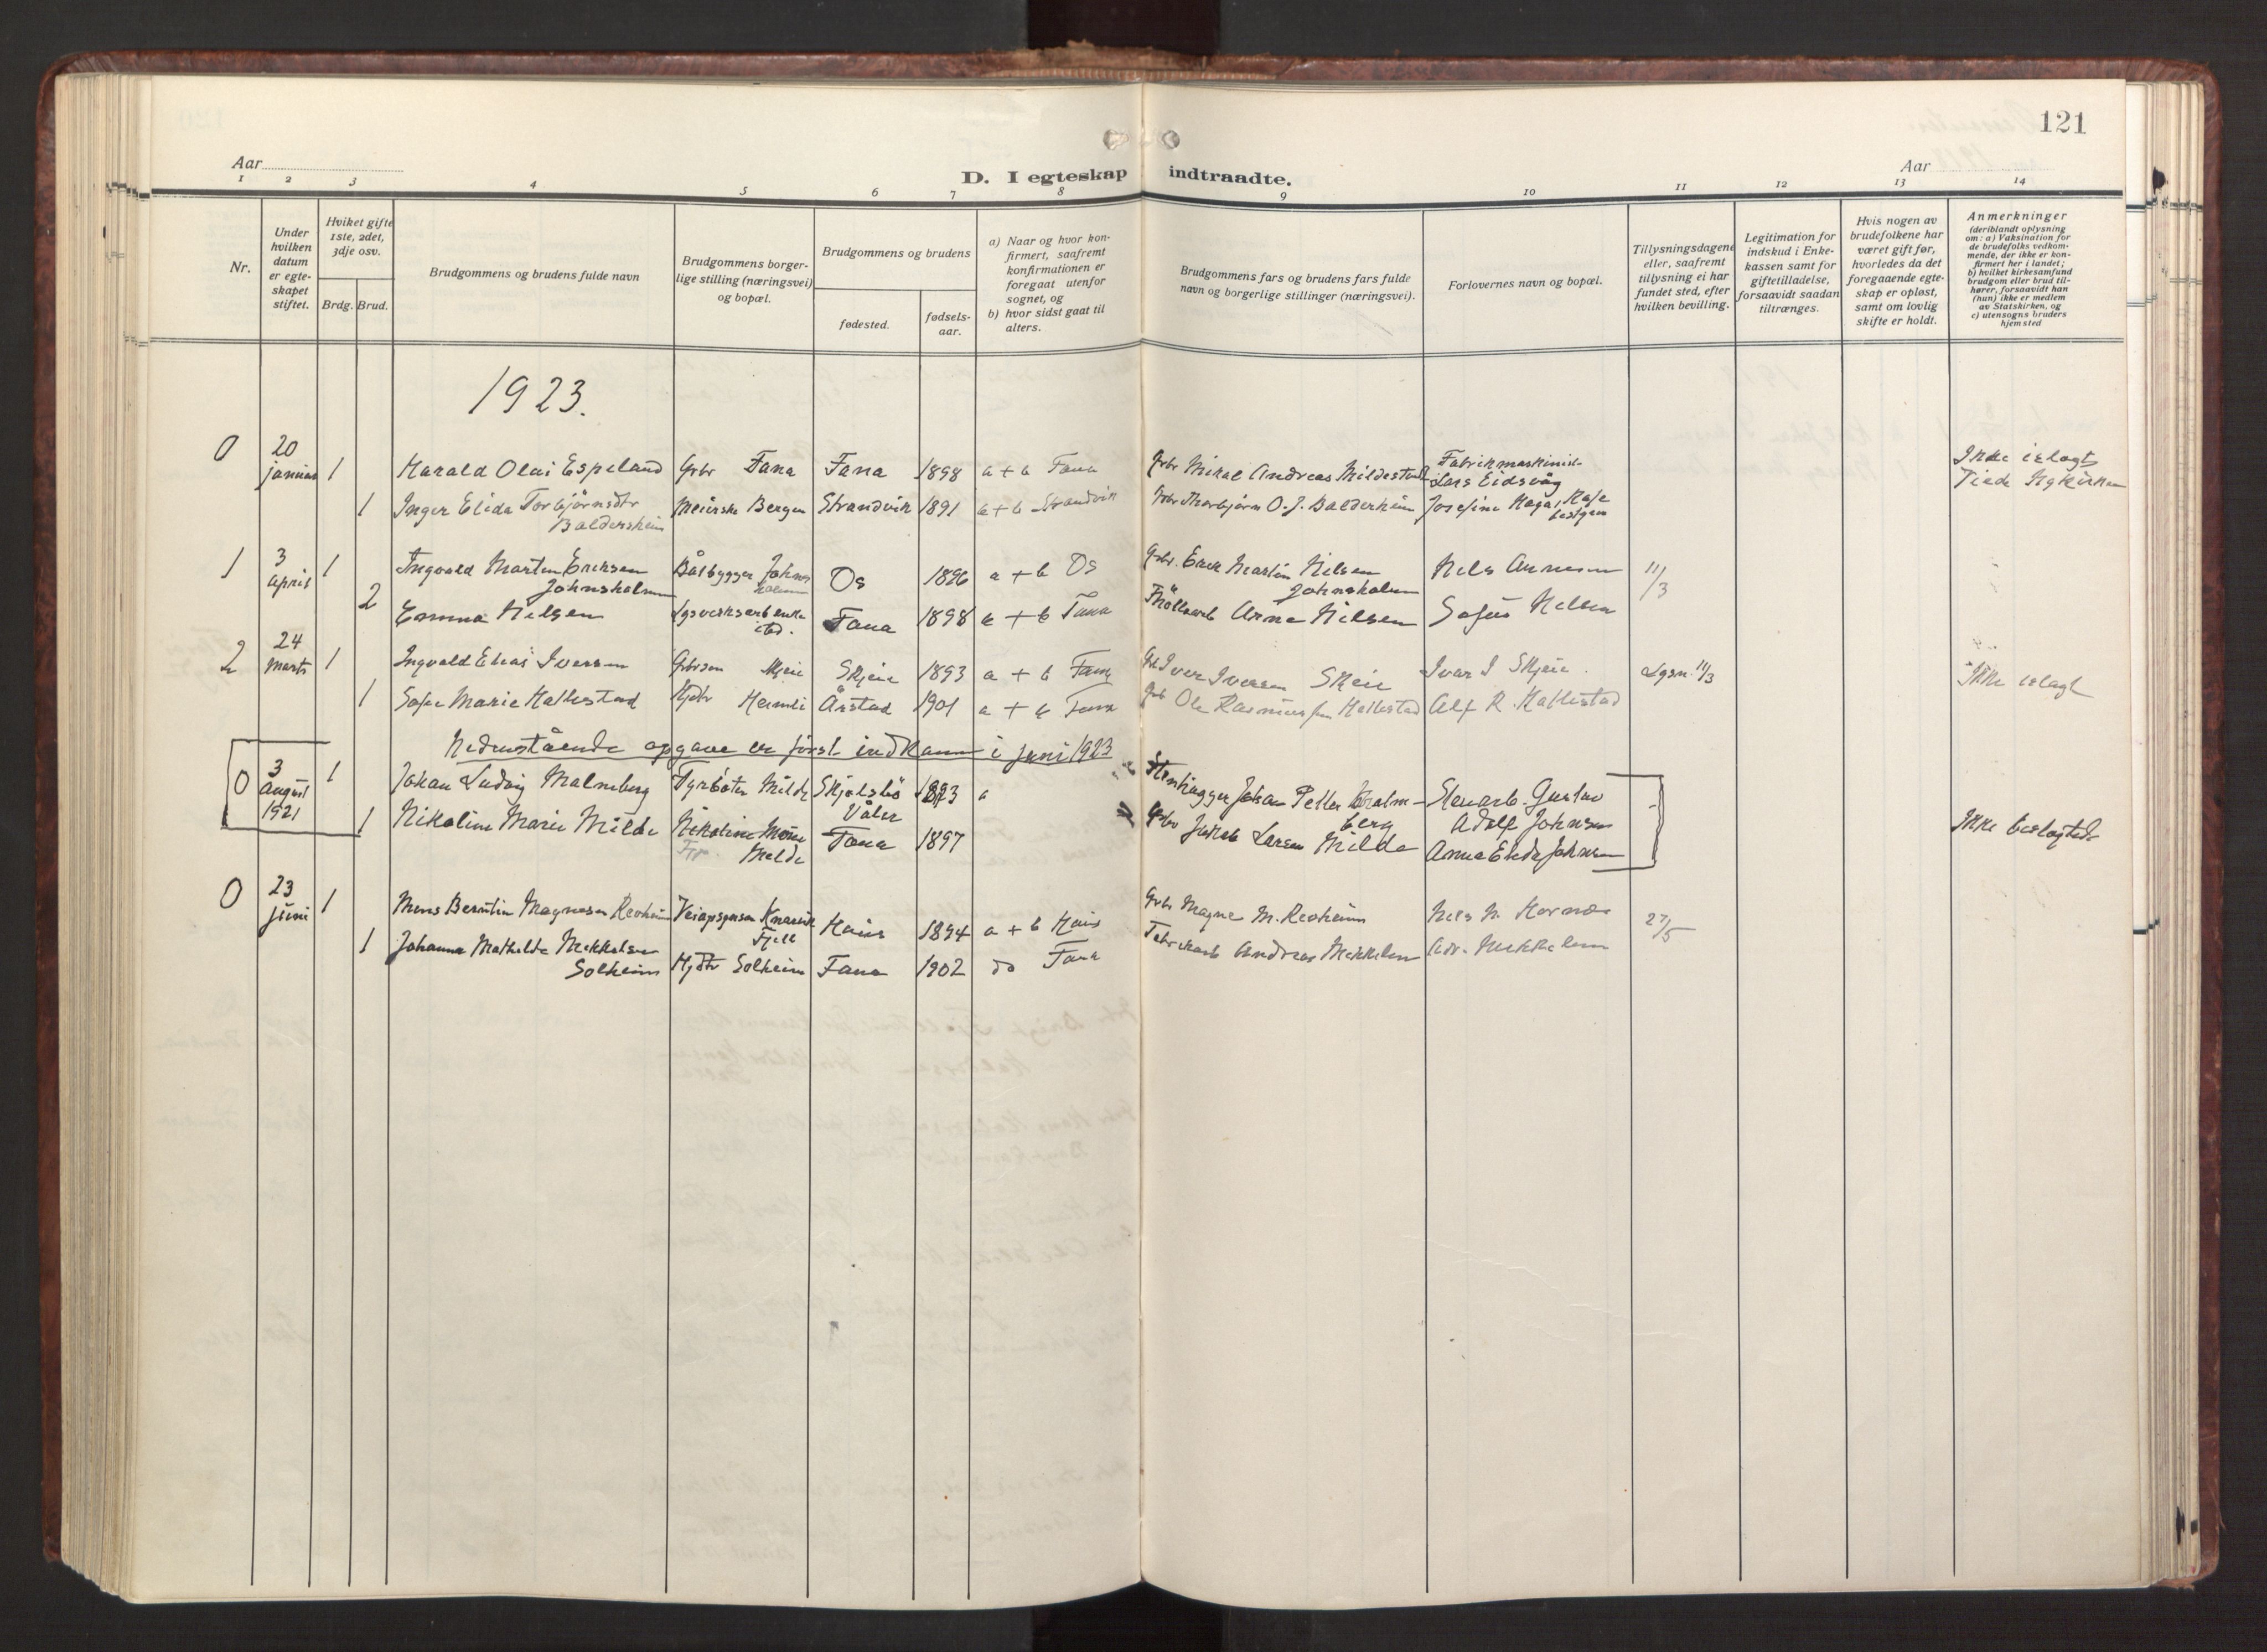 121
Aar
D. I egteskap indtraadte.
Aar
1 2 3 4 5 6 7 8 9 10 11 12 13 14
Nr.
Under
hvilken
datum
er egte-
skapet
stiftet.
Hviket gifte
1ste, 2det,
3dje osv.
Brdg. Brud.
Brudgommens og brudens fulde navn
Brudgommens borger-
lige stilling (næringsvei)
og bopæl.
Brudgommens og brudens
fødested.
fødsels-
aar.
a) Naar og hvor kon-
firmert, saafremt
konfirmationen er
foregaat utenfor
sognet, og
b) hvor sidst gaat til
alters.
Brudgommens fars og brudens fars fulde
navn og borgerlige stillinger (næringsvei).
Forlovernes navn og bopæl.
Tillysningsdagene
eller, saafremt
tillysning ei har
fundet sted, efter
hvilken bevilling.
Legitimation for
indskud i Enke-
kassen samt for
giftetilladelse,
forsaavidt saadan
tiltrænges.
Hvis nogen av
brudefolkene har
været gift før,
hvorledes da det
foregaaende egte-
skap er opløst,
samt om lovlig
skifte er holdt.
Anmerkninger
(deriblandt oplysning
om: a) Vaksination for
de brudefolks vedkom-
mende, der ikke er kon-
firmert her i landet;
b) hvilket kirkesamfund
brudgom eller brud til-
hører, forsaavidt han
(hun) ikke er medlem
av Statskirken, og
c) utensogns bruders
hjemsted
1923.
0 20 januar 1 Harald Olai Espeland Grbr Fana Fana 1898 a + b Fana Grbr Mikal Andreas Fabrikmaskinist Lars Eidsvåg Ikke
1 Inger Elida Torbjörnsdtr Baldersheim Meierske Bergen Strandvik 1891 a + b Strandvik Grbr Thorbjörn O. J. Balderheim Josefine Haga
1 3 april 1 Ingvald Martin Eriksen Johnsholmen Båtbygger Os 1896 a + b Os Grbr. Martin Nilsen Johnsholmen Nels 11/3
2 Emma Nilsen Fana 1898 a + b Fana Arne Nilsen Sofus Nilsen
2 24 marts 1 Ingvald Elias Iversen Grbrsøn Skjeie Skjeie 1893 a + b Fana Iver Iversen Skeie Ivar I Skjeie Lysn. 11/3 Ikke
1 Sofie Marie Hallestad Hjdtr Årstad 1901 a + b Fana Ole Rasmussen Hallestad Alf R. Hallestad
Nedenstående opgave er först indkommen i juni 1923
0 3 August 1921 1 Johan Ludvig Malmberg Fyrböter Milde Skjelsbö Våler 1893 a Stenhugger Johan Petter Malmberg Stenarb. Gustav Adolf Johnsen
1 Nikoline Marie Milde Milde Fana 1897 Grbr Jakob Larsen Milde Anna Elida Johnsen Ikke beslægtede
0 23 juni 1 Mons Berntin Magnesen Reoheim Knarvik Fjell Haus 1894 a + b Haus Grbr Magne M. Reoheim Nils N. 27/5
1 Johanna Mathilde Mikkelsen Solheim Hjdtr Solheim Fana 1902 do Fana Fabrikarb Andreas Mikkelsen Mikkelsen